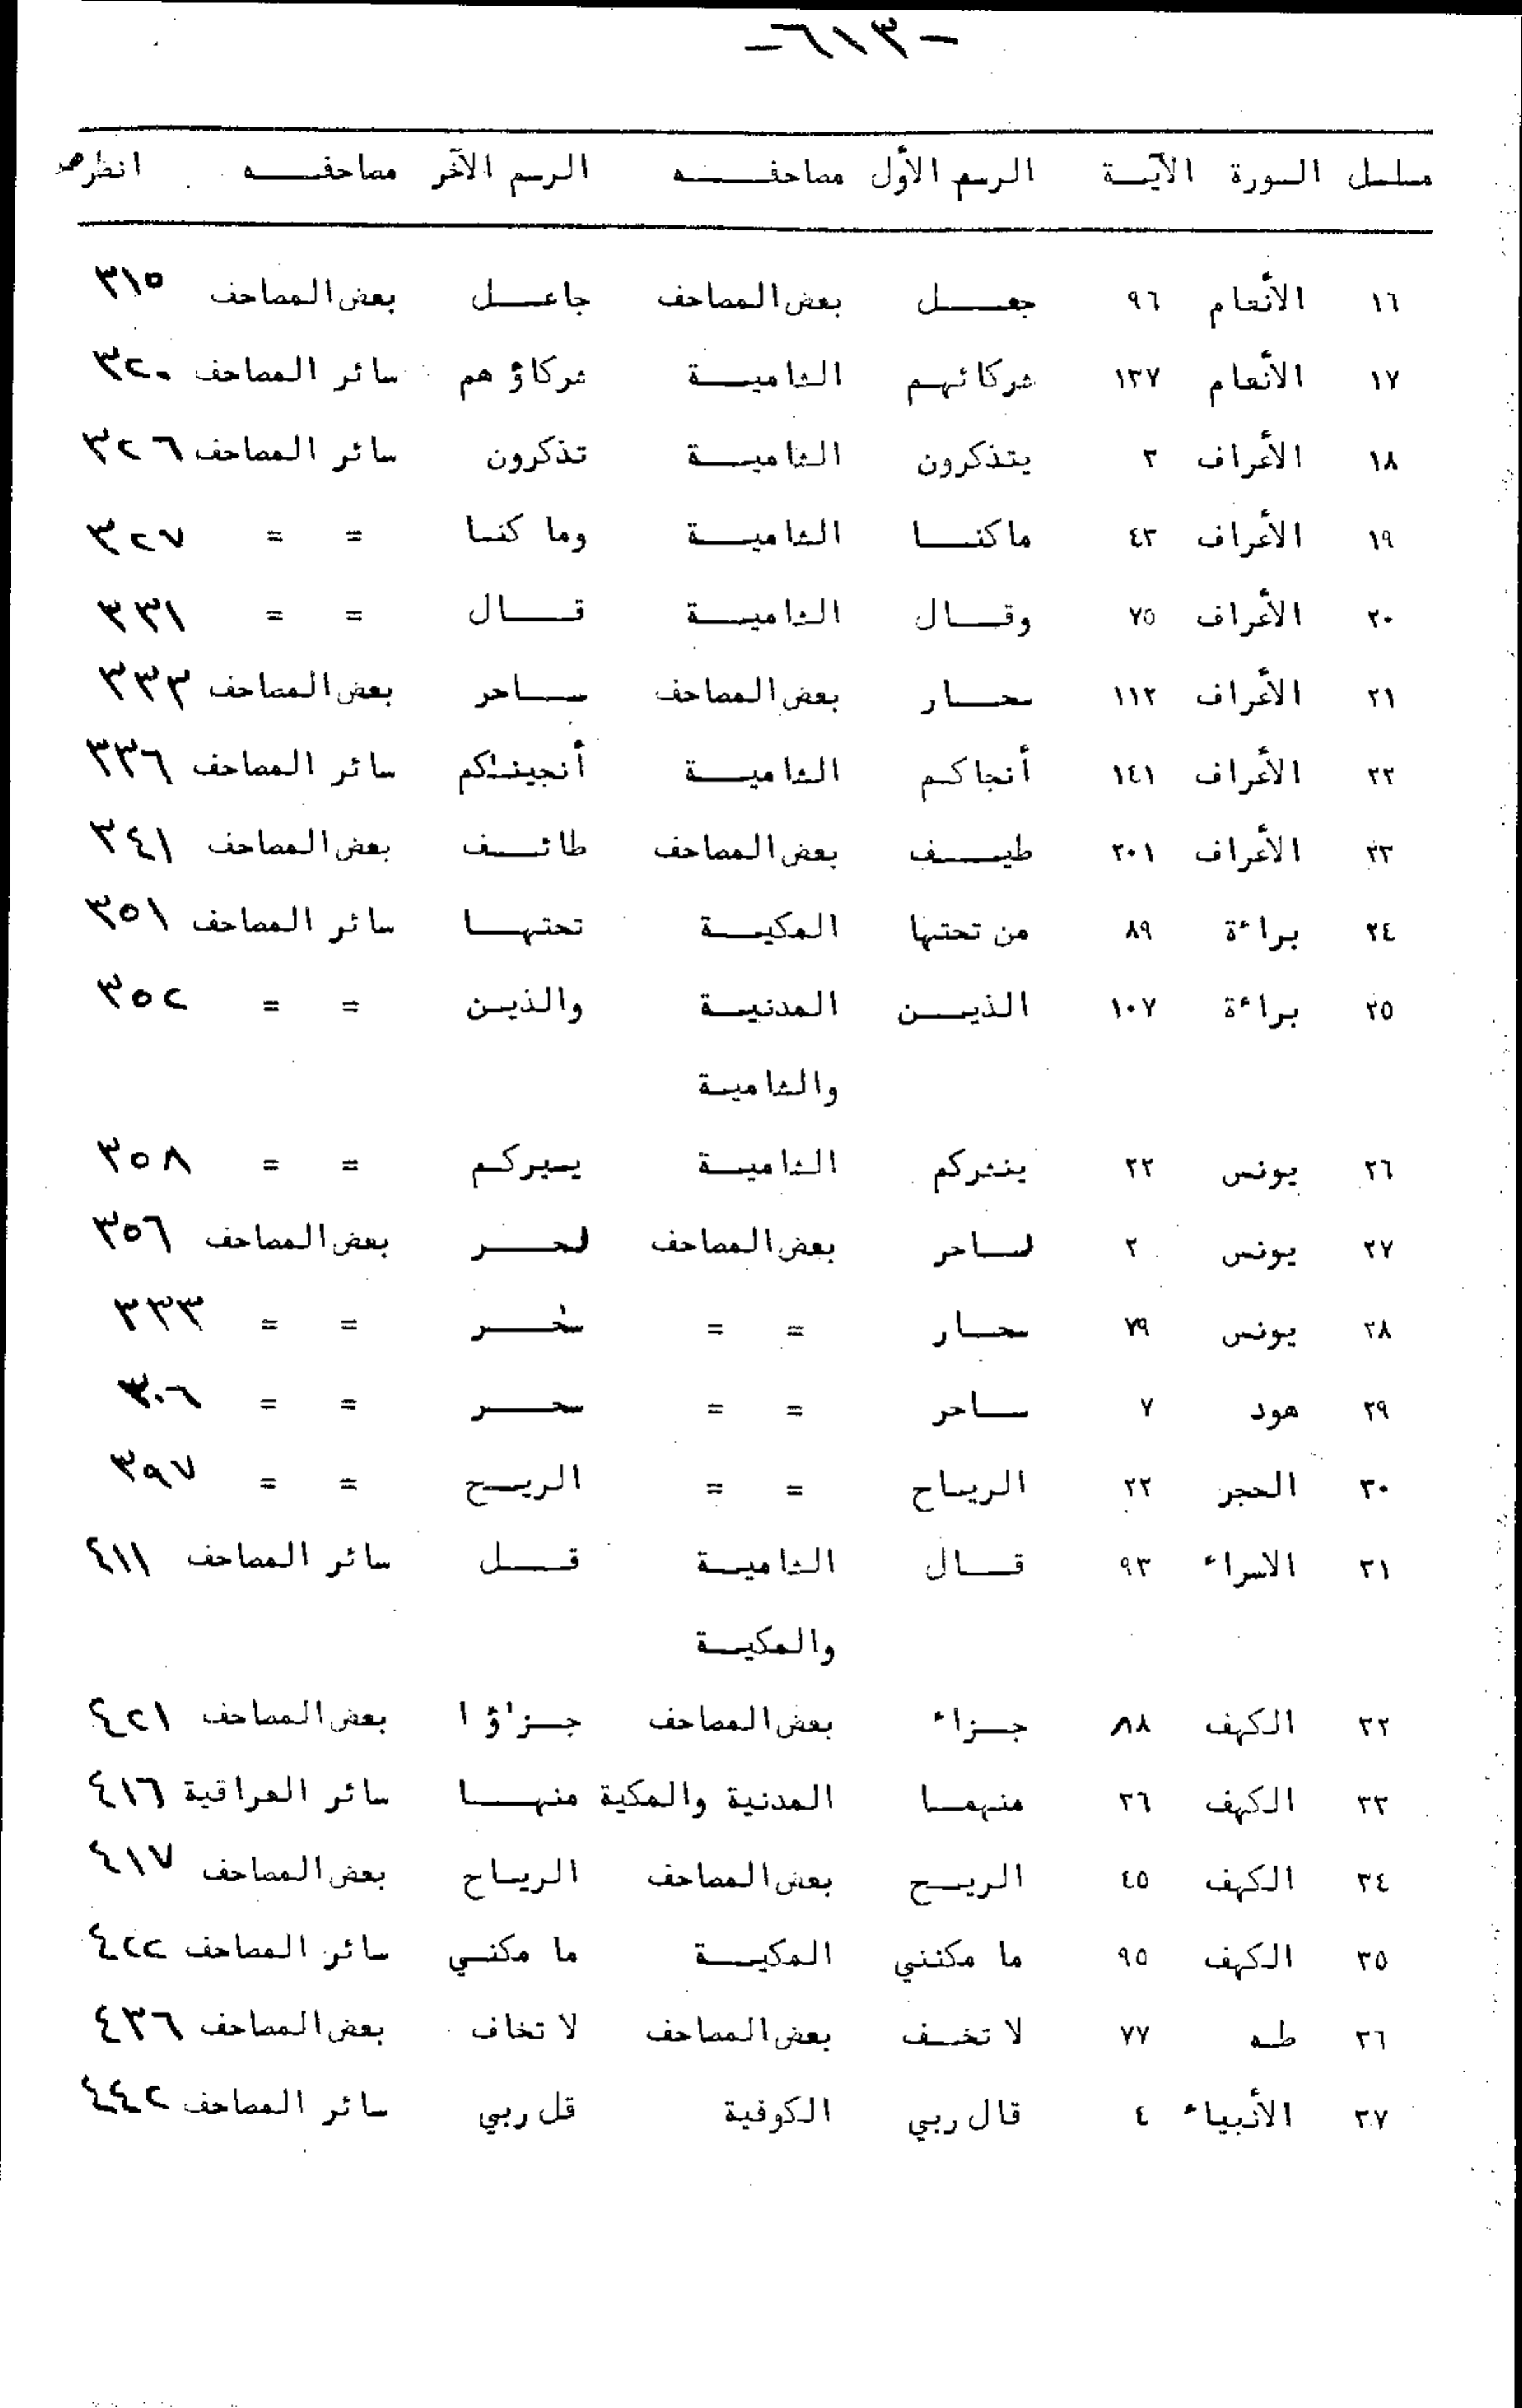 -٦١٣-
مسلسل السورة الآيــة الرسم الأول مصاحفــــه الرسم الآخر مصاحفــــه انظر ص
١٦ الأنعام ٩٦ جعــــل بعض المصاحف جاعــــل بعض المصاحف ٣١٥
١٧ الأنعام ١٣٧ شركائهـم الشاميــة شركاؤهم سائر المصاحف ٣٢٠
١٨ الأعراف ٣ يتذكرون الشاميــة تذكرون سائر المصاحف ٣٢٦
١٩ الأعراف ٤٣ ماكنــــا الشاميــة وما كنـا = = ٣٢٧
٢٠ الأعراف ٧٥ وقــــال الشاميــة قــــال = = ٣٣١
٢١ الأعراف ١١٢ سحــــار بعض المصاحف ســــاحر بعض المصاحف ٣٣٣
٢٢ الأعراف ١٤١ أنجاكـم الشاميــة أنجينـاكم سائر المصاحف ٣٣٦
٢٣ الأعراف ٢٠١ طيــــف بعض المصاحف طائــــف بعض المصاحف ٣٤١
٢٤ براءة ٨٩ من تحتها المكيــة تحتهــــا سائر المصاحف ٣٥١
٢٥ براءة ١٠٧ الذيــــن المدنيــة والذيـن = = ٣٥٢
والشاميـة
٢٦ يونس ٢٢ ينشركم الشاميــة يسيركـم = = ٣٥٨
٢٧ يونس ٢ لســاحر بعض المصاحف لسحــــر بعض المصاحف ٣٥٦
٢٨ يونس ٧٩ سحــــار = = سٰحــــر = = ٣٣٣
٢٩ هود ٧ ســــاحر = = سحــــر = = ٣٠٦
٣٠ الحجر ٢٢ الريـاح = = الريـح = = ٣٩٧
٣١ الاسراء ٩٣ قــــال الشاميــة قــــل سائر المصاحف ٤١١
والمكيـة
٣٢ الكهف ٨٨ جــزاء بعض المصاحف جــزٰؤا بعض المصاحف ٤٢١
٣٣ الكهف ٣٦ منهمــا المدنية والمكية منهــــا سائر العراقية ٤١٦
٣٤ الكهف ٤٥ الريــح بعض المصاحف الريـاح بعض المصاحف ٤١٧
٣٥ الكهف ٩٥ ما مكنني المكيــة ما مكنـي سائر المصاحف ٤٢٢
٣٦ طـه ٧٧ لا تخـف بعض المصاحف لا تخاف بعض المصاحف ٤٣٦
٣٧ الأنبياء ٤ قال ربي الكوفية قل ربي سائر المصاحف ٤٤٢